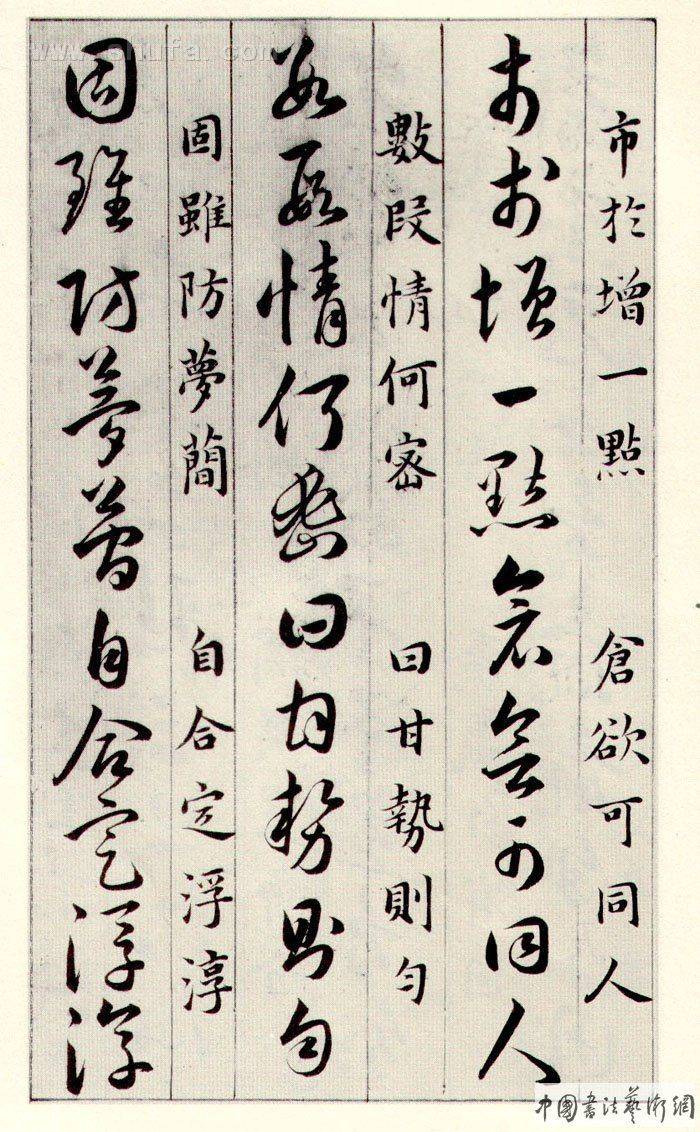 市於增一點　倉欲可同人
市於增一點倉欲可同人
數段情何密　曰甘勢則勻
數段情何密曰甘勢則勻
固雖防夢簡　自合定浮淳
固雖防夢簡自合定浮淳
中國書法藝術網